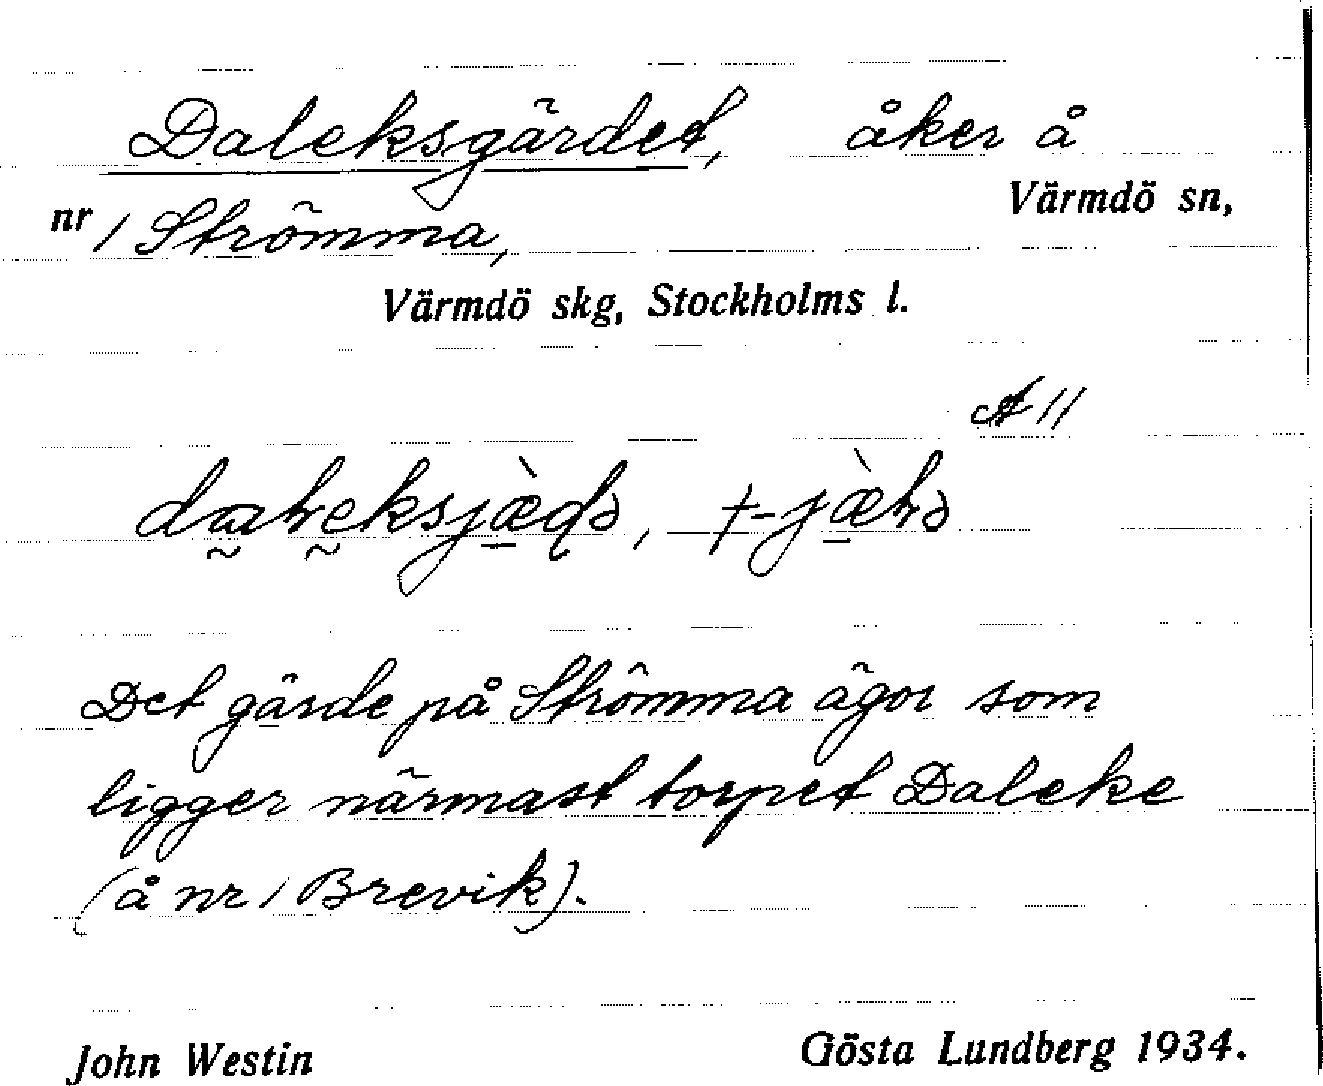 Daleksgärdet, åker å
Värmdö sn,
nr 1 Strömma,
Värmdö skg, Stockholms l.
A 11
Det gärde på Strömma ägor som
ligger närmast torpet Daleke
(å nr 1 Brevik).
John Westin Gösta Lundberg 1934.